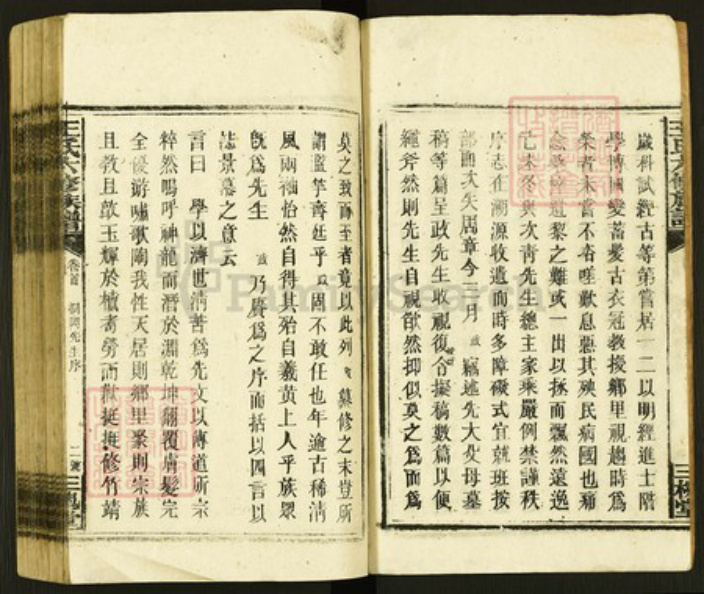 歲科試經古等第嘗居一二以明經進士階
學博國變蓄髮古衣冠教授鄉里視趨時爲
榮者未嘗不咨嗟歎息惡其殃民病國也痛
念 遺黎之難或一出以拯而飄然遠逸
它未冬與次青先生總主家乘嚴例禁謹秩
序志在溯源收遺而時多障礙式宜就班按
部 大矢周章今三月 竊述先大父母墓
稿等篇呈政先生收視復令擬稿數篇以便
繩斧然則先生自視欿然抑似莫之爲而爲
莫之致而至者竟以此列 纂修之末豈所
謂濫竽齊廷乎 固不敢任也年逾古稀清
風兩袖怡然自得其殆自羲黃上人乎族眾
旣爲先生 乃賡爲之序而括以四言以
誌景慕之意云
言曰 學以濟世清苦爲先文以傳道所宗
粹然鳴呼神龍而潛於淵乾坤翻覆膚髮完
全優游嘯歌陶我性天居則鄉里聚則宗族
且教且 玉輝於櫝 勞 挺挺修竹靖
王氏六修族譜
卷首
先生序
二
三槐堂
王氏六修族譜
三槐堂
FamilySearch